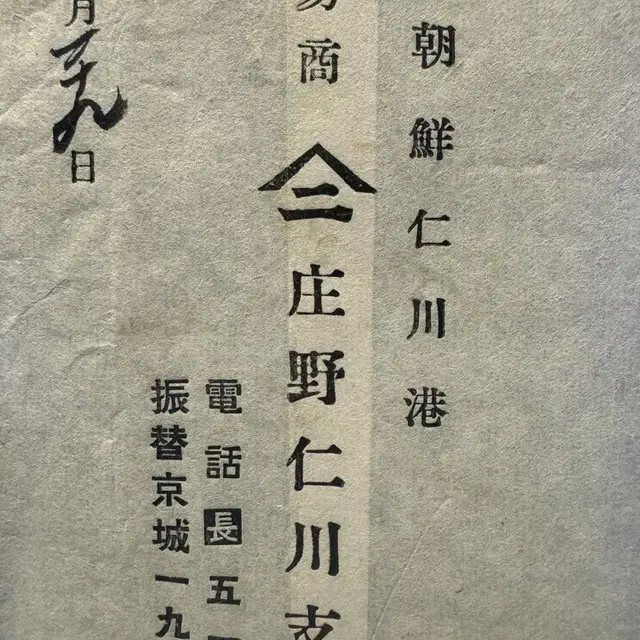 朝鮮仁川港
商 𠆢二 庄野仁川支
電話長五一
振替京城一九
月廿九日